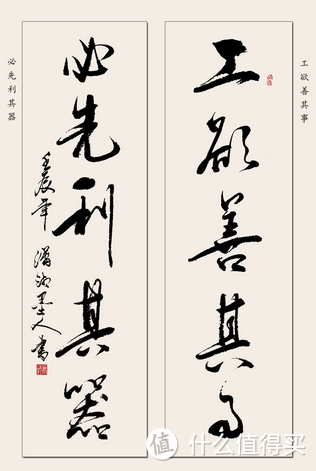 工欲善其事
工欲善其事
必先利其器
壬辰年 潇湘墨人书
必先利其器
值 什么值得买